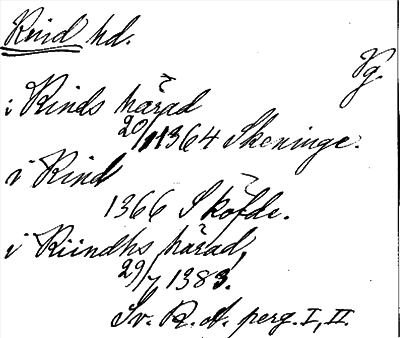 Kind hd.
Vg.
i Kinds härad
20/11 1364 Skeninge.
i Kind
1366 Sköfde.
i Kiindhs härad
29/7 1383.
Sv. R. A. perg. I, II.